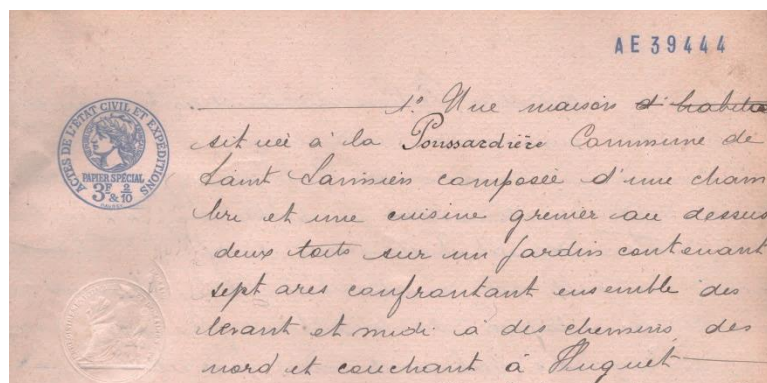 AE 39444
ACTES DE L'ÉTAT CIVIL ET EXPÉDITIONS
PAPIER SPÉCIAL
3F 2/10
& 
1° Une maison d'habita
située à la Poussardière Commune de
Saint Sornin composée d'une cham
bre et une cuisine grenier au dessus
deux toits sur un jardin contenant
sept ares confrontant ensemble des
levant et midi à des chemins des
nord et couchant à Huguet